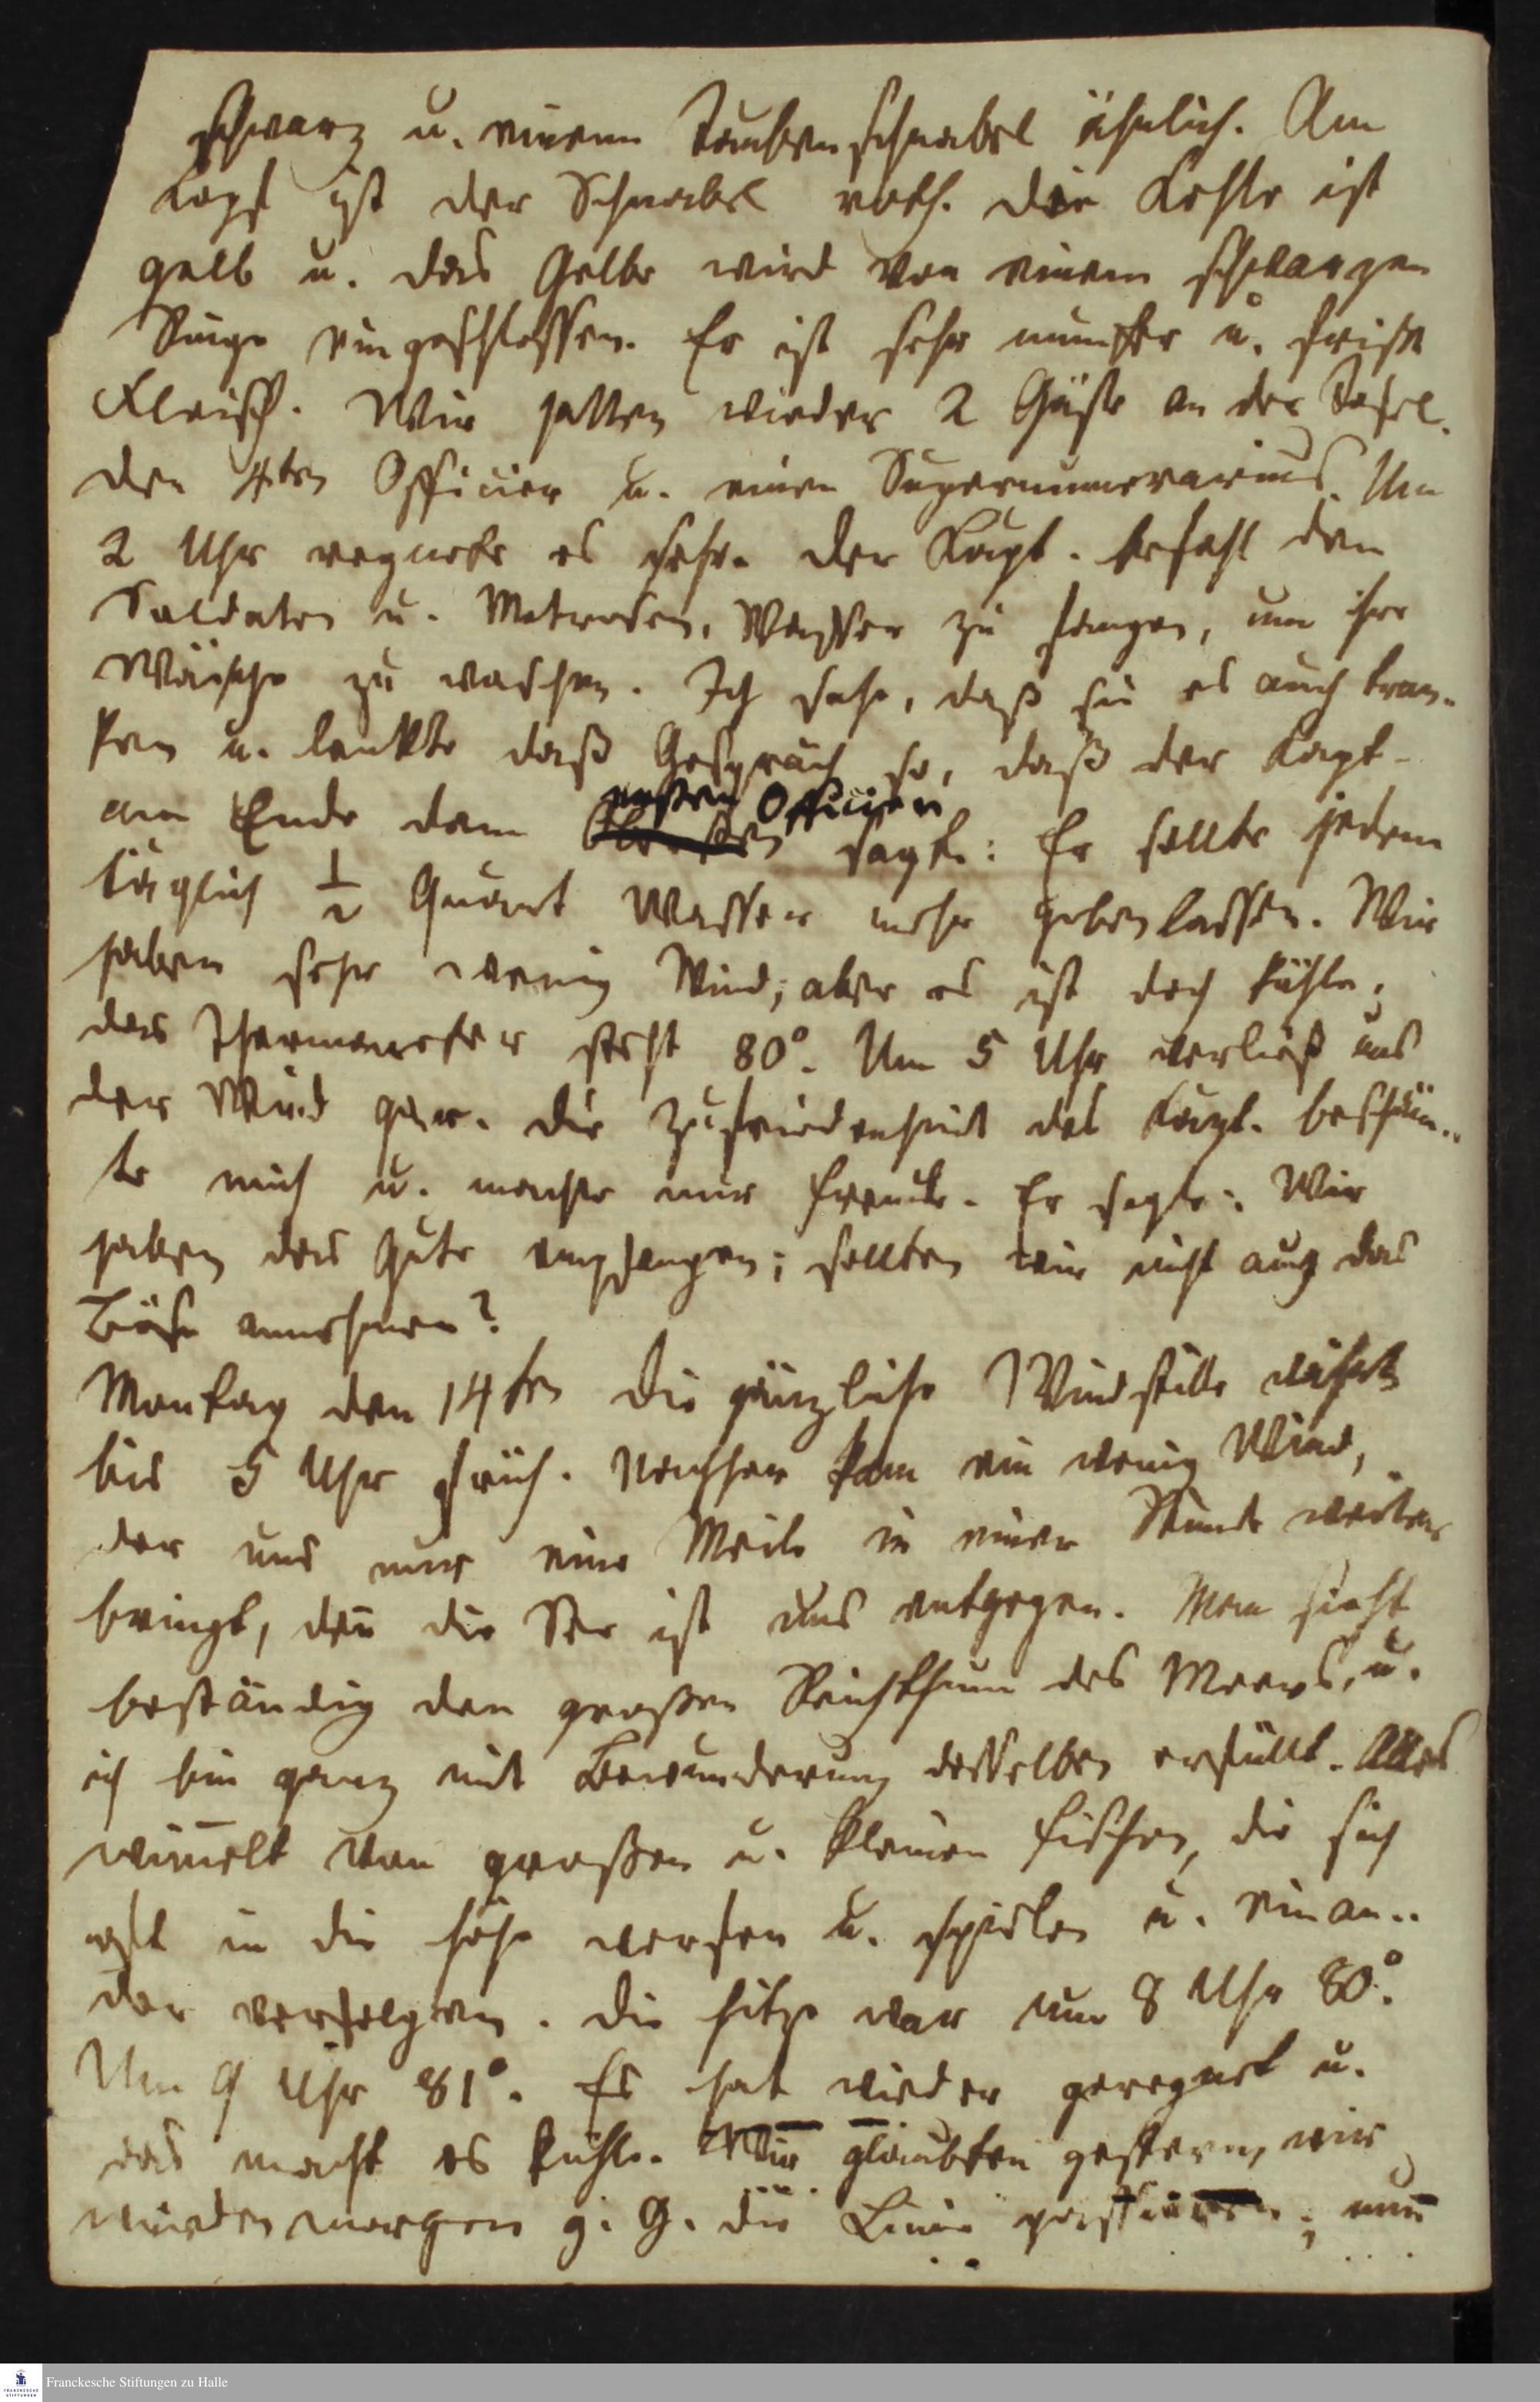 schwarz u. einem Taubenschnabel ähnlich. Am
Kopf ist der Schnabel roth. die Kehle ist
gelb u. das Gelbe wird von einem schwarzen
Ringe eingeschlossen. Er ist sehr munter u. frißt
Fleisch. Wir hatten wieder 2 Gäste an der Tafel.
den 4ten Officier u. einen Supernumerarius. Um
2 Uhr regnete es sehr. Der Kapt. befahl den
Soldaten u. Matrosen, Wasser zu fangen, um ihre
Wäsche zu waschen. Ich sahe, daß sie es auch tran-
ken u. lenkte daß Gespräch so, daß der Kapt.
am Ende dem ersten Officier sagte: Er sollte jedem
täglich 1/2 Quart Wasser mehr geben lassen. Wir
haben sehr wenig Wind; aber es ist doch kühle;
das Thermometer steht 80°. Um 5 Uhr verließ uns
der Wind gar. Die Zufriedenheit des Kapt. beschäm-
te mich u. machte mir Freude. Er sagte: Wir
haben das Gute empfangen; sollten wir nicht auch das
Böse annehmen?
Montag den 14ten Die gänzliche Windstille währte
bis 5 Uhr früh. Nachher kam ein wenig Wind,
der uns nur eine Meile in einer Stunde weiter
bringt, den̄ die See ist uns entgegen. Man sieht
beständig den großen Reichthum des Meers, u.
ich bin ganz mit Bewunderung desselben erfüllt. Alles
wim̄elt von großen u. kleinen Fischen, die sich
oft in die Höhe werfen u. spielen u. einan-
der verfolgen. Die Hitze war um 8 Uhr 80°.
Um 9 Uhr 81°. Es hat wieder geregnet u.
das macht es kühle. Wir glaubten gestern, wir
würden morgen g. G. die Linie passieren; nun
Franckesche Stiftungen zu Halle